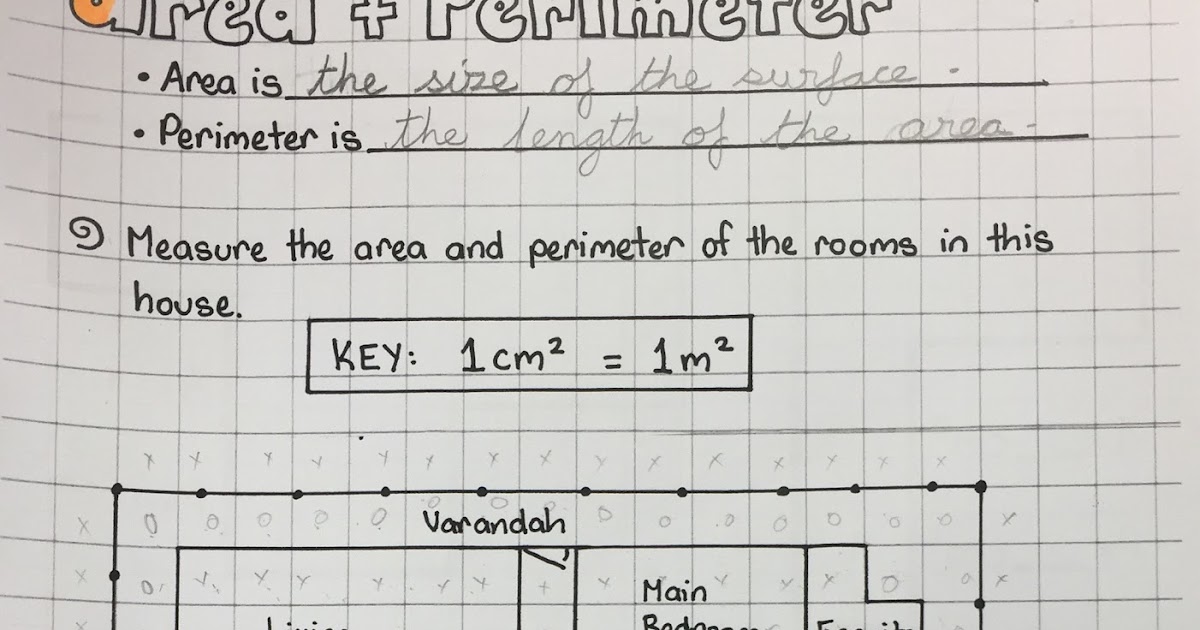 area + Perimeter
• Area is the size of the surface.
• Perimeter is the length of the area.
Measure the area and perimeter of the rooms in this
house.
KEY: 1cm² = 1m²
Varandah
Main
Living